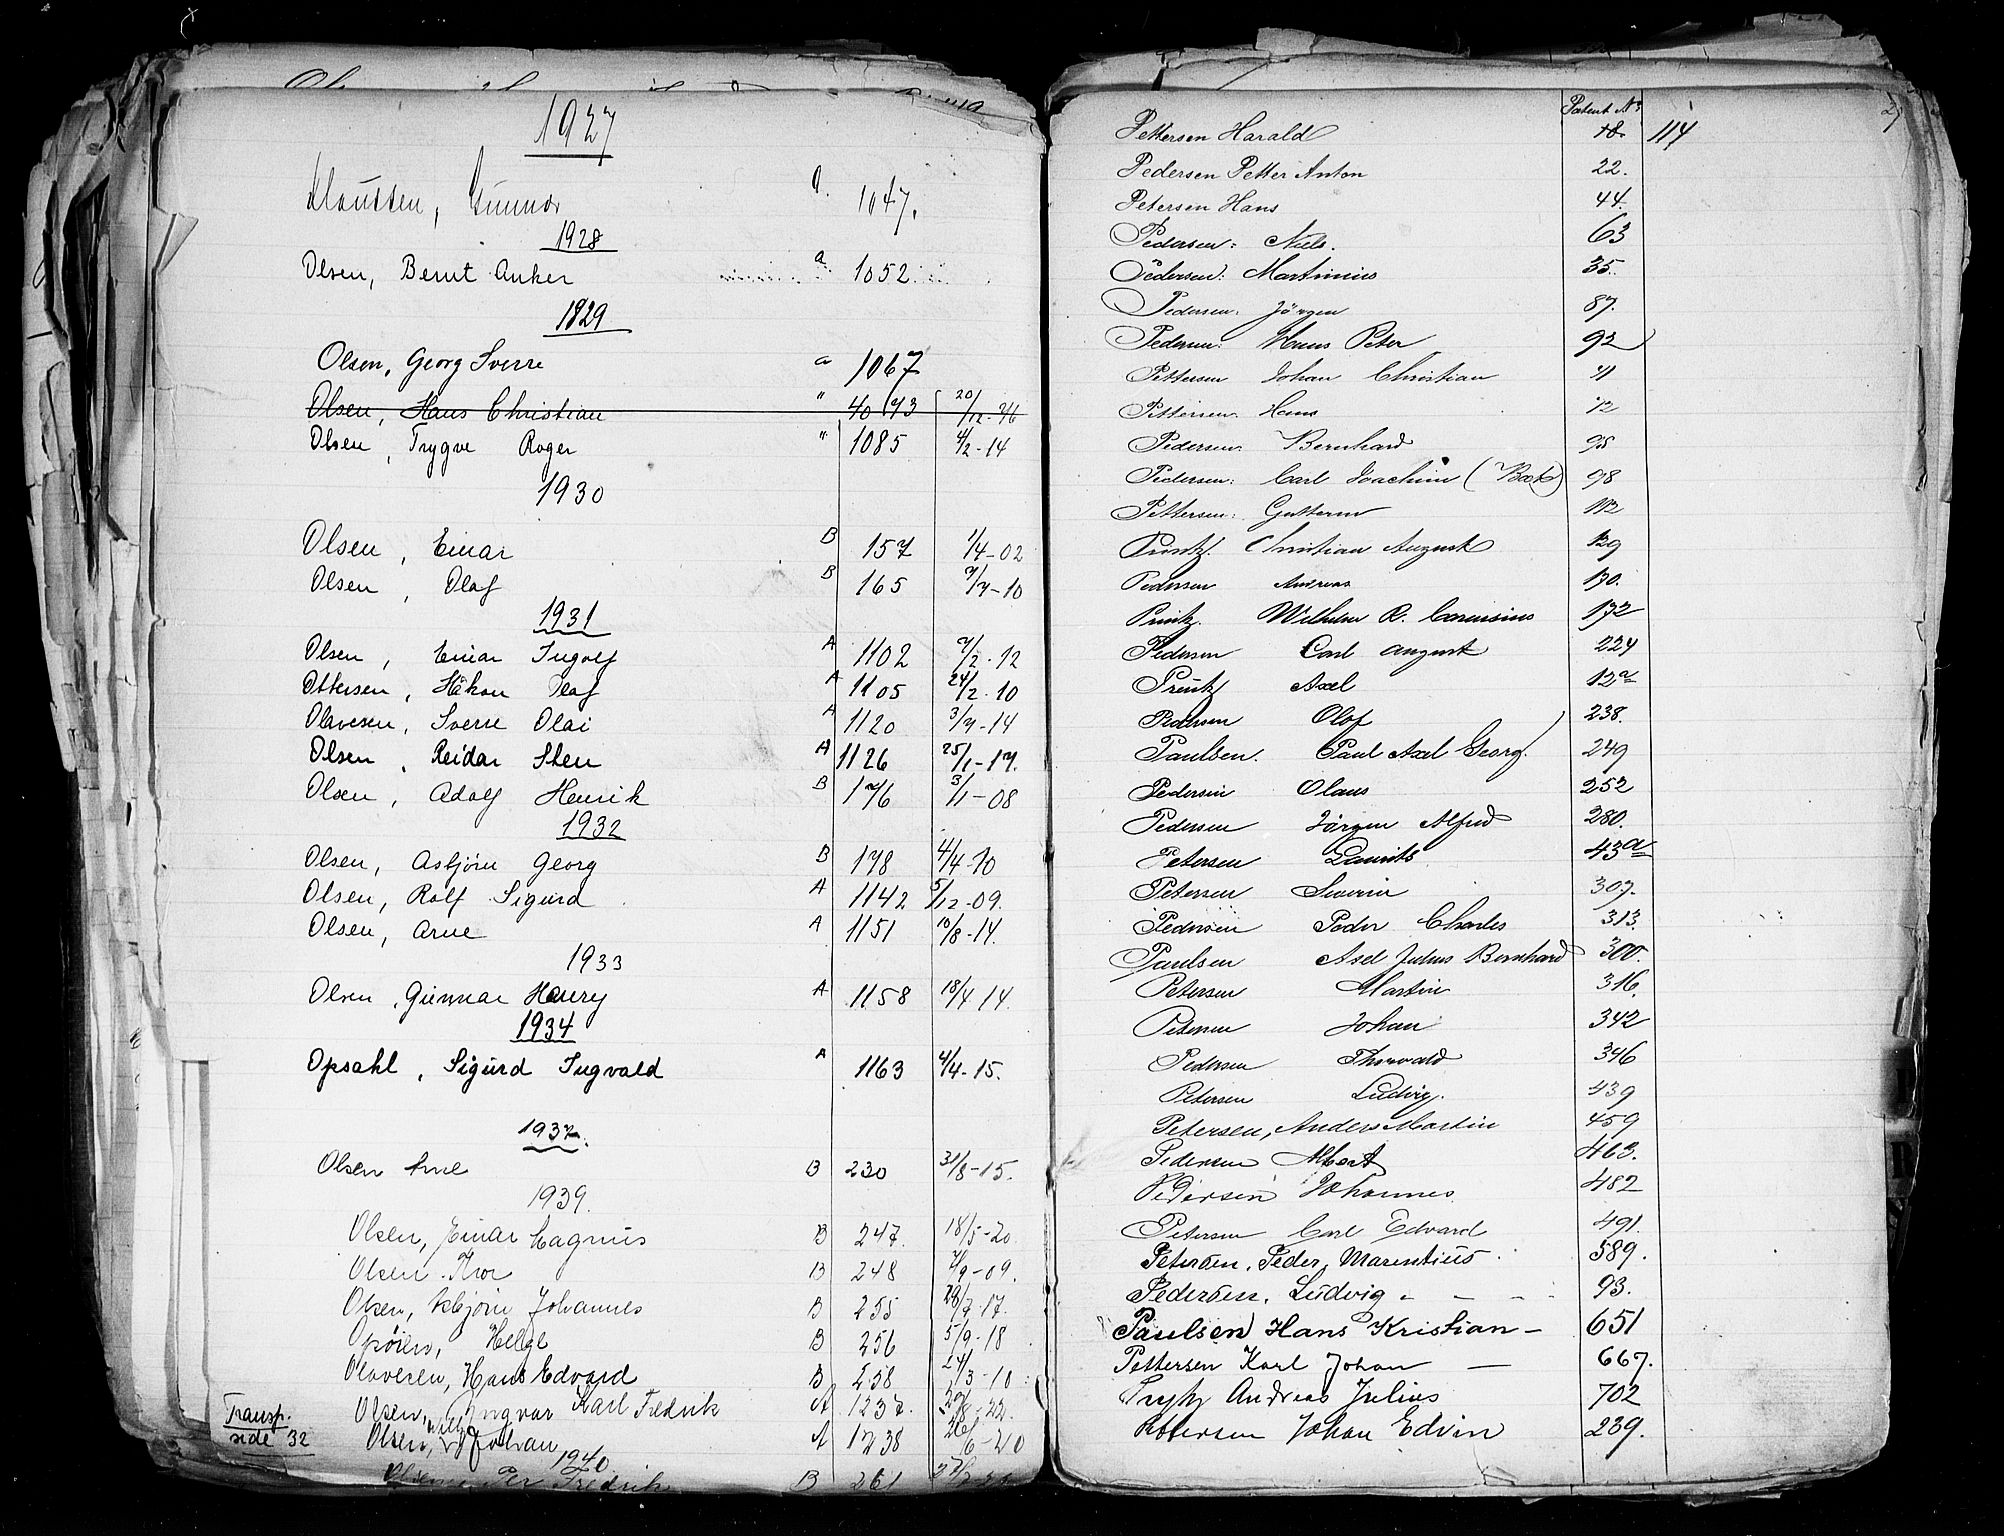 1927
Gunnar a. 1047.
1928
Olsen, Bernt Anker a 1052
1829
Olsen, Georg Sverre a 1067
Olsen, Hans Christian " 4073 20/12-76
Olsen, Trygve Roger " 1085 4/2-14
1930
Olsen, Einar B 157 1/4-02
Olsen, Olaf B 165 7/7-10
1931
Olsen, Einar Ingolf A 1102 7/2-12
Ottersen, Håkon Olaf A 1105 24/2-10
Olavesen, Sverre Olai A 1120 3/7-14
Olsen, Reidar Sten A 1126 25/1-17.
Olsen, Adolf Henrik B 176 3/11-08
1932
Olsen, Asbjørn Georg B 178 4/4-10
Olsen, Rolf Sigurd A 1142 5/12-09.
Olsen, Arne A 1151 10/8-14.
1933
Olsen, Gunnar Henry A 1158 18/4 14.
1934
Opsahl, Sigurd Ingvald A 1163 4/4-15.
1937.
Olsen Arne B 230 31/8-15.
1939.
Olsen, Einar Magnus B 247. 18/5-20
Olsen Thor B 248 7/9-09.
Olsen, Asbjørn Johannes B 255 28/7-17.
Opøien, Helge B 256 5/9-18
Olavesen, Hans Edvard B 258 24/3-10
Olsen, Yngvar Karl Fredrik A 1237. 30/8-22.
Transp. side 32
Olsen, Willy Johan A 1238 26/6-20
1940.
Olsen Per Fredrik B 261
Patent No
Pettersen Harald 18. 114
Pedersen Petter Anton 22.
Petersen Hans 44.
Pedersen: Niels. 63
Pedersen: Martinius 35.
Pedersen: Jörgen 87.
Pedersen: Hans Peter 92
Pettersen Johan Christian 71
Pettersen Hans 72
Pedersen Bernhard 95
Pedersen: Carl Joachim (Beck) 98
Pettersen: Guttorm 112
Printz. Christian August 129
Pedersen Andreas 170.
Printz. Wilhelm R. 172
Pedersen Carl August 224
Printz Axel 12a
Pedersen Olof 238.
Paulsen. Paul Axel Georg. 249
Pedersen Olaus 252
Pedersen Jörgen Alfred 280.
Petersen Laurits 43a
Petersen Severin 307.
Pedersen Peder Charles 313.
Paulsen Axel Julius Bernhard 300.
Petersen Martin 316.
Petersen Johan 342
Pedersen Thorvald 346
Petersen Ludvig. 439
Petersen, Anders Martin 459
Pedersen Albert 463.
Pedersen Johannes 482
Petersen Carl Edvard 491.
Petersen, Peder, Marentius 589.
Pedersen, Ludvig - - - - 93.
Paulsen Hans Kristian - 651
Pettersen Karl Johan - 667.
Andreas Julius 702
Pettersen Johan Edvin 239.